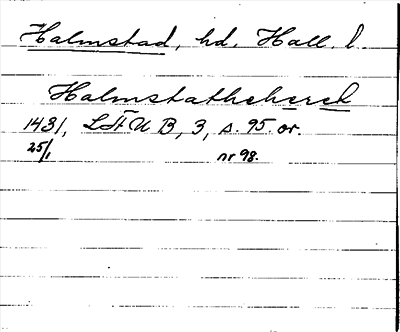 Halmstad, hd. Hall. l.
Halmstathehereh
1431, LFUB, 3, s. 95. or.
25/1 nr 98.